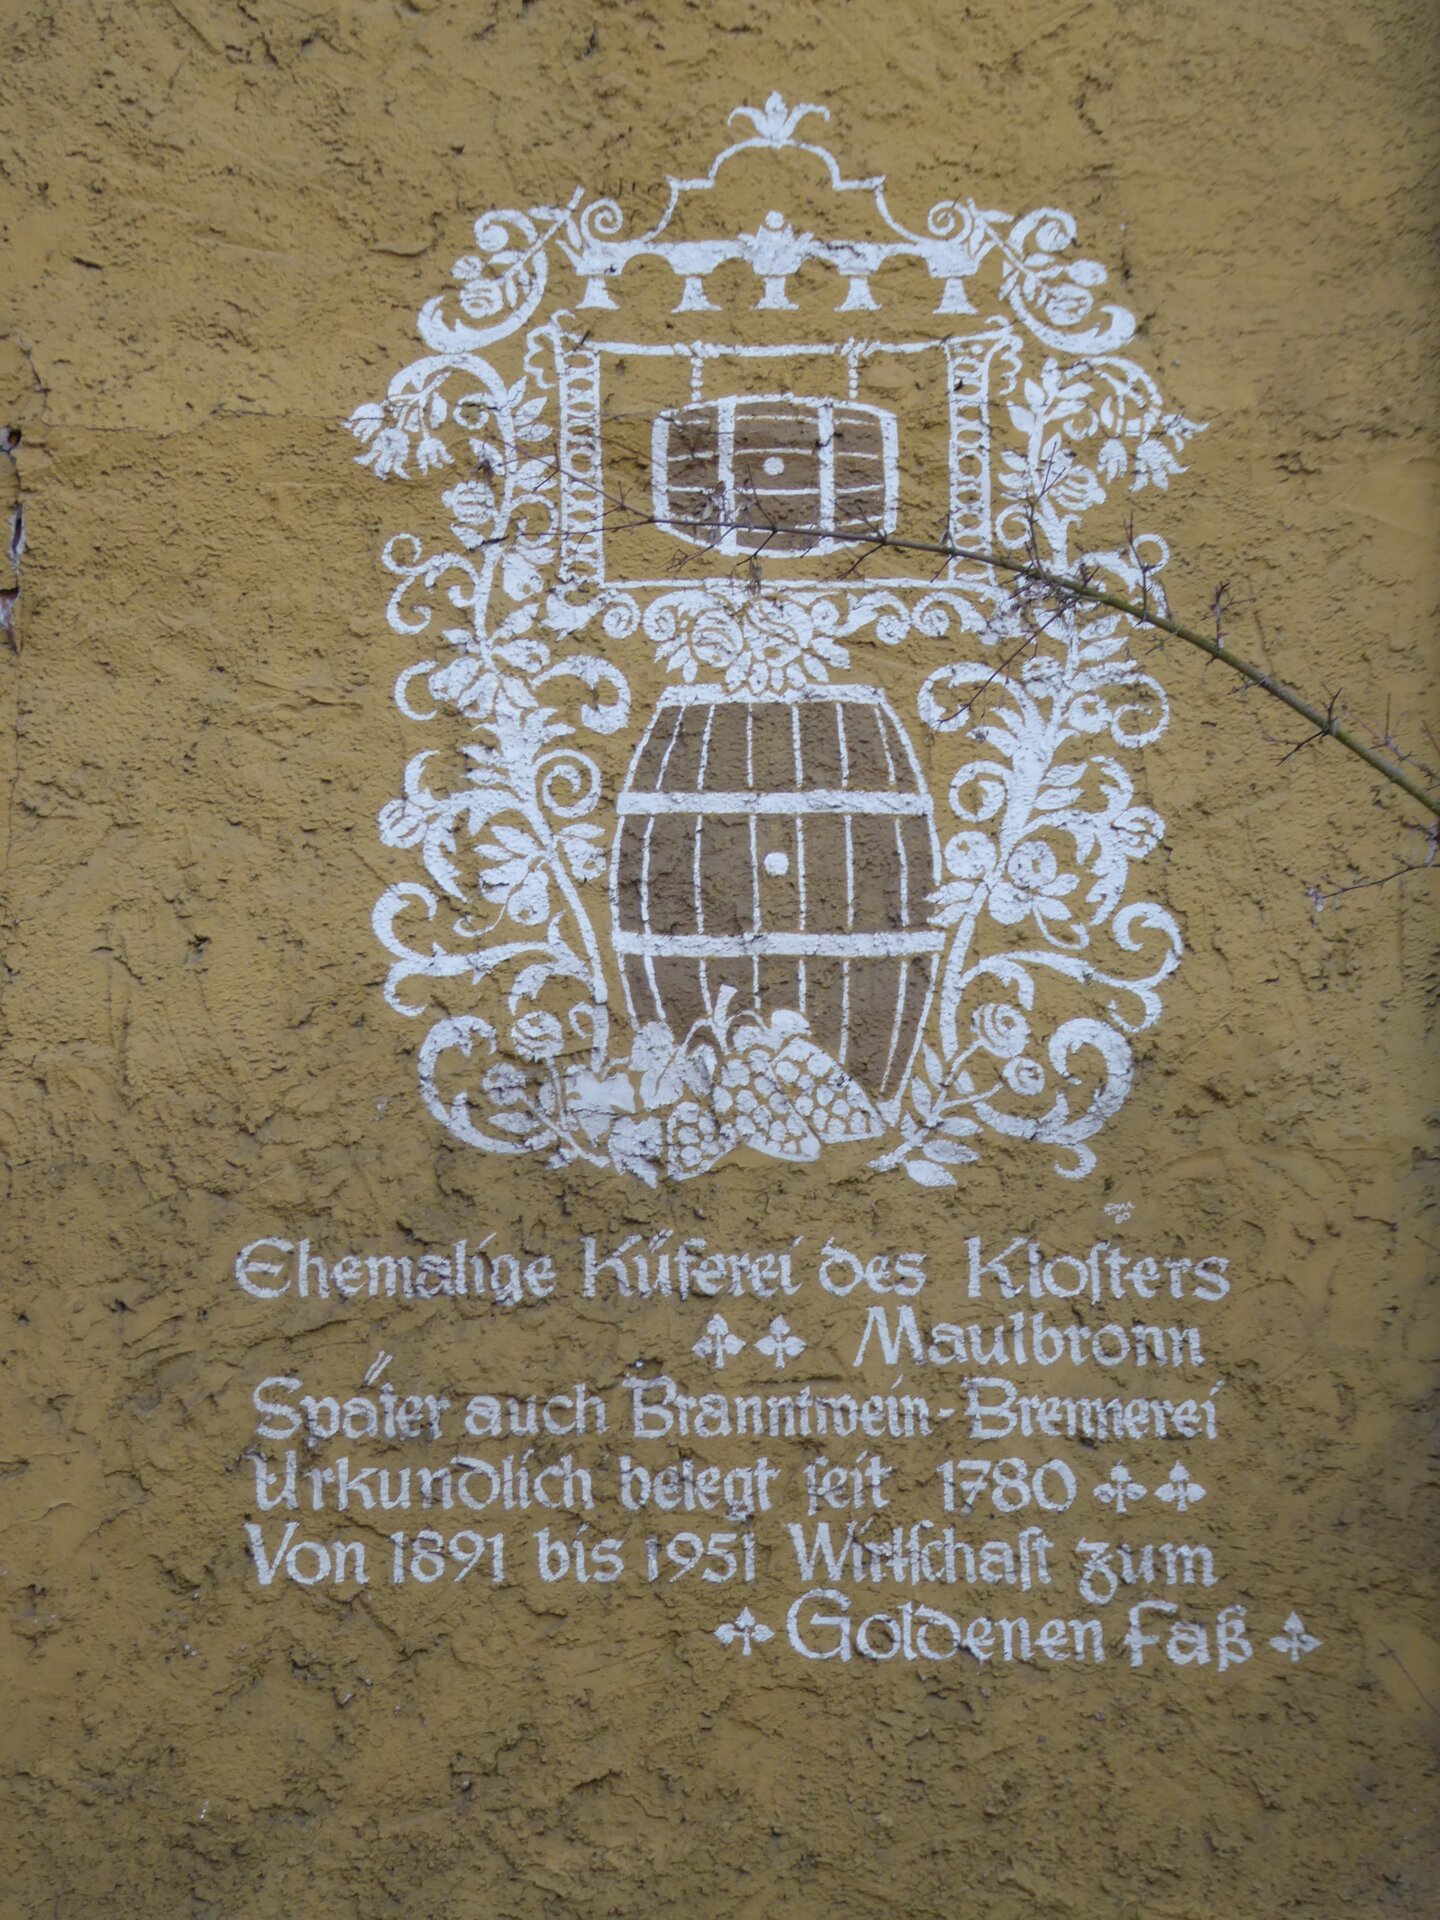 Ehemalige Küferei des Kloſters
Maulbronn
Später auch Branntwein-Brennerei
Urkundlich belegt ſeit 1780
Von 1891 bis 1951 Wirtſchaft zum
Goldenen Faß
80